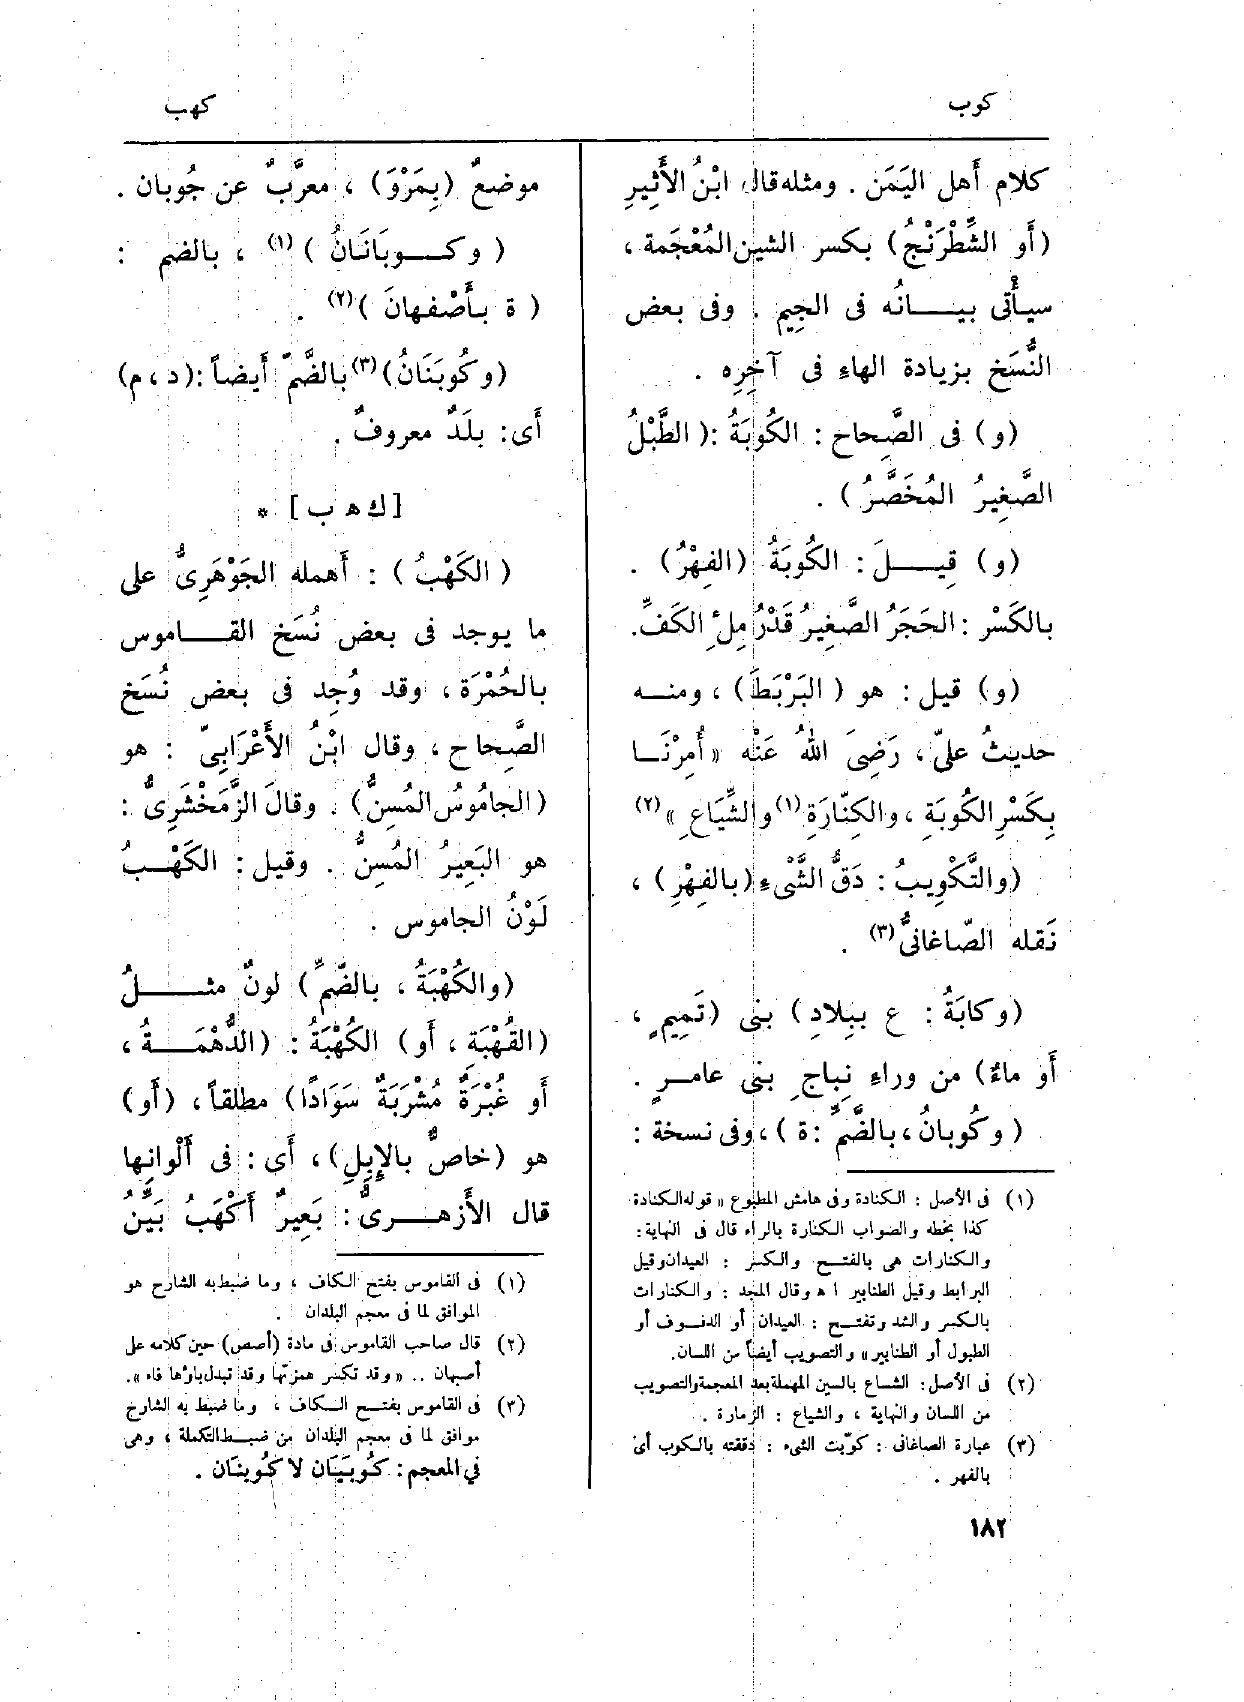 كوب
كهب
كلام أَهل اليَمَن . ومثله قال ابْنُ الأَثِيرِ
(أَو الشِّطْرَنْجُ) بكسر الشين المُعْجَمة ،
سيأْتى بيانُه فى الجِيمِ . وفى بعض
النُّسَخ بزيادة الهاءِ فى آخِرِه .
(و) فى الصِّحاح : الكُوبَةُ : (الطَّبْلُ
الصَّغِيرُ المُخَصَّرُ) .
(و) قِيلَ : الكُوبَةُ (الفِهْرُ) .
بالكَسْر : الحَجَرُ الصَّغِيرُ قَدْرُ مِلْءِ الكَفِّ.
(و) قيل : هو (البَرْبَطُ) ، ومنه
حديثُ علىٍّ ، رَضِىَ اللهُ عَنْه «أُمِرْنَا
بِكَسْرِ الكُوبَةِ ، والكِنَّارَةِ (١) والشِّيَاعِ » (٢)
(والتَّكْوِيبُ : دَقُّ الشَّىْءِ (بالفِهْرِ) ،
نَقله الصّاغانىُّ (٣) .
(وكابَةُ : ع بِبِلادِ) بنى (تَمِيمٍ ،
أَو ماءٌ) من وراءِ نِباجِ بنى عامرٍ .
(وكُوبانُ ، بالضَّمِّ : ة) ، وفى نسخة :
(١) فى الأصل : الكنادة وفى هامش المطبوع « قوله الكنادة
كذا بخطه والصواب الكنارة بالراء قال فى النهاية :
والكنارات هى بالفتح والكسر : العيدان وقيل
البرابط وقيل الطنابير ا ه وقال المجد : والكنارات
بالكسر والشد وتفتح : العيدان أو الدفوف أو
الطبول أو الطنابير » والتصويب أيضاً من اللسان.
(٢) فى الأصل : الشاع بالسين المهملة بعد المعجمة والتصويب
من اللسان والنهاية ، والشياع : الزمارة .
(٣) عبارة الصاغانى : كوّبت الشىء : دققته بالكوب أى
بالفهر .
١٨٢
موضعٌ (بِمَرْوَ) ، معرَّبٌ عن جُوبان .
(وكوبَانَانُ) (١) ، بالضم :
(ة بأَصْفهانَ) (٢) .
(وكُوبَنَانُ) (٣) بالضَّمّ أَيضاً : (د ، م)
أَى : بلَدٌ معروفٌ .
[ك ه ب] *
(الكَهْبُ) : أَهمله الجَوْهَرِىُّ على
ما يوجد فى بعض نُسَخ القاموس
بالحُمْرَة ، وقد وُجِد فى بعض نُسَخ
الصِّحاح ، وقال ابْنُ الأَعْرَابِىّ : هو
(الجامُوسُ المُسِنُّ) . وقالَ الزَّمَخْشَرِىُّ :
هو البَعِيرُ المُسِنُّ . وقيل : الكَهْبُ
لَوْنُ الجاموس .
(والكُهْبَةُ ، بالضَّمِّ) لونٌ مثلُ
(القُهْبَة ، أَو) الكُهْبَةُ : (الدُّهْمَةُ ،
أَو غُبْرَةٌ مُشْرَبَةٌ سَوَادًا) مطلقاً ، (أَو)
هو (خاصٌّ بالإِبِلِ) ، أَى : فى أَلْوانِها
قال الأَزهرىُّ : بَعِيرٌ أَكْهَبُ بَيِّنُ
(١) فى القاموس بفتح الكاف ، وما ضبط به الشارح هو
الموافق لما فى معجم البلدان .
(٢) قال صاحب القاموس فى مادة (أصص) حين كلامه على
أصبهان .. « وقد تكسر همزتها وقد تبدل باؤها فاء ».
(٣) فى القاموس بفتح الكاف ، وما ضبط به الشارح
موافق لما فى معجم البلدان من ضبط التكملة ، وهى
في المعجم : كُوبَيَان لا كُوبنان .